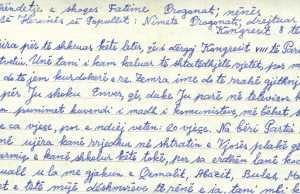 rëndetje e shoqes Fatime Progonat, nënës
së Heroinës së Popullit: Nimete Progonat, drejtuar
Kongresit 8 të
ëra për të shkruar këtë letër, që i dërgoj Kongresit VIII të Par
Unë tani i kam kaluar të shtatëdhjetë vjetët, por m
do të jem kurdoherë e re. Zemra ime do të rrahë gjithnj
për Ju shoku Enver, që, duke Ju parë në televizor
punimet kuvendi i madh i komunistëve, më bëhet s
ca vjeçe, por e ndjej veten: 20 vjeçe. Na bëri Partia
në ujëra kanë rrjedhur në shtratin e Vjosës plakë që
armiq e kanë shkelur këtë tokë, por sa erdhën lanë koc
me gjakun e Qemalit, Abazit, Bules, M
et e të mijë dëshmorëve të rënë e ia, tani, mb